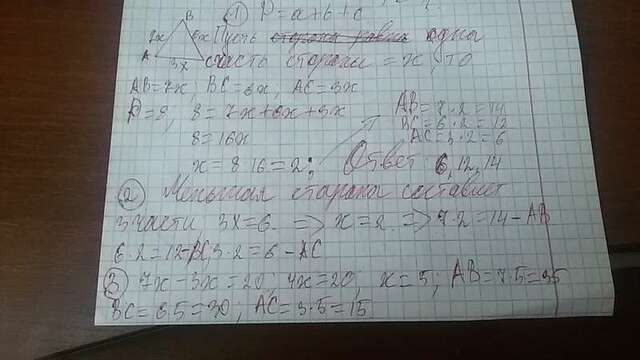 ① P=a+b+c
B
7x 6x Пусть сторона равна одна
A 3x C часть стороны = x, то
AB=7x; BC=6x, AC=3x
P=8, 8=7x+6x+3x
8=16x
x=8 16=2;
AB=7·2=14
BC=6·2=12
AC=3·2=6
Ответ 6,12,14
② Меньшая сторона составляет
3 части, 3x=6. => x=2 => 7·2=14-AB
6·2=12-BC, 3·2=6-AC
③ 7x-3x=20; 4x=20, x=5; AB=7·5=35
BC=6·5=30; AC=3·5=15